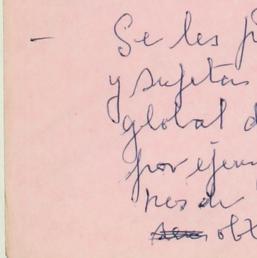 – Se les p
y sujetas
global d
por ejem
nes de
obt